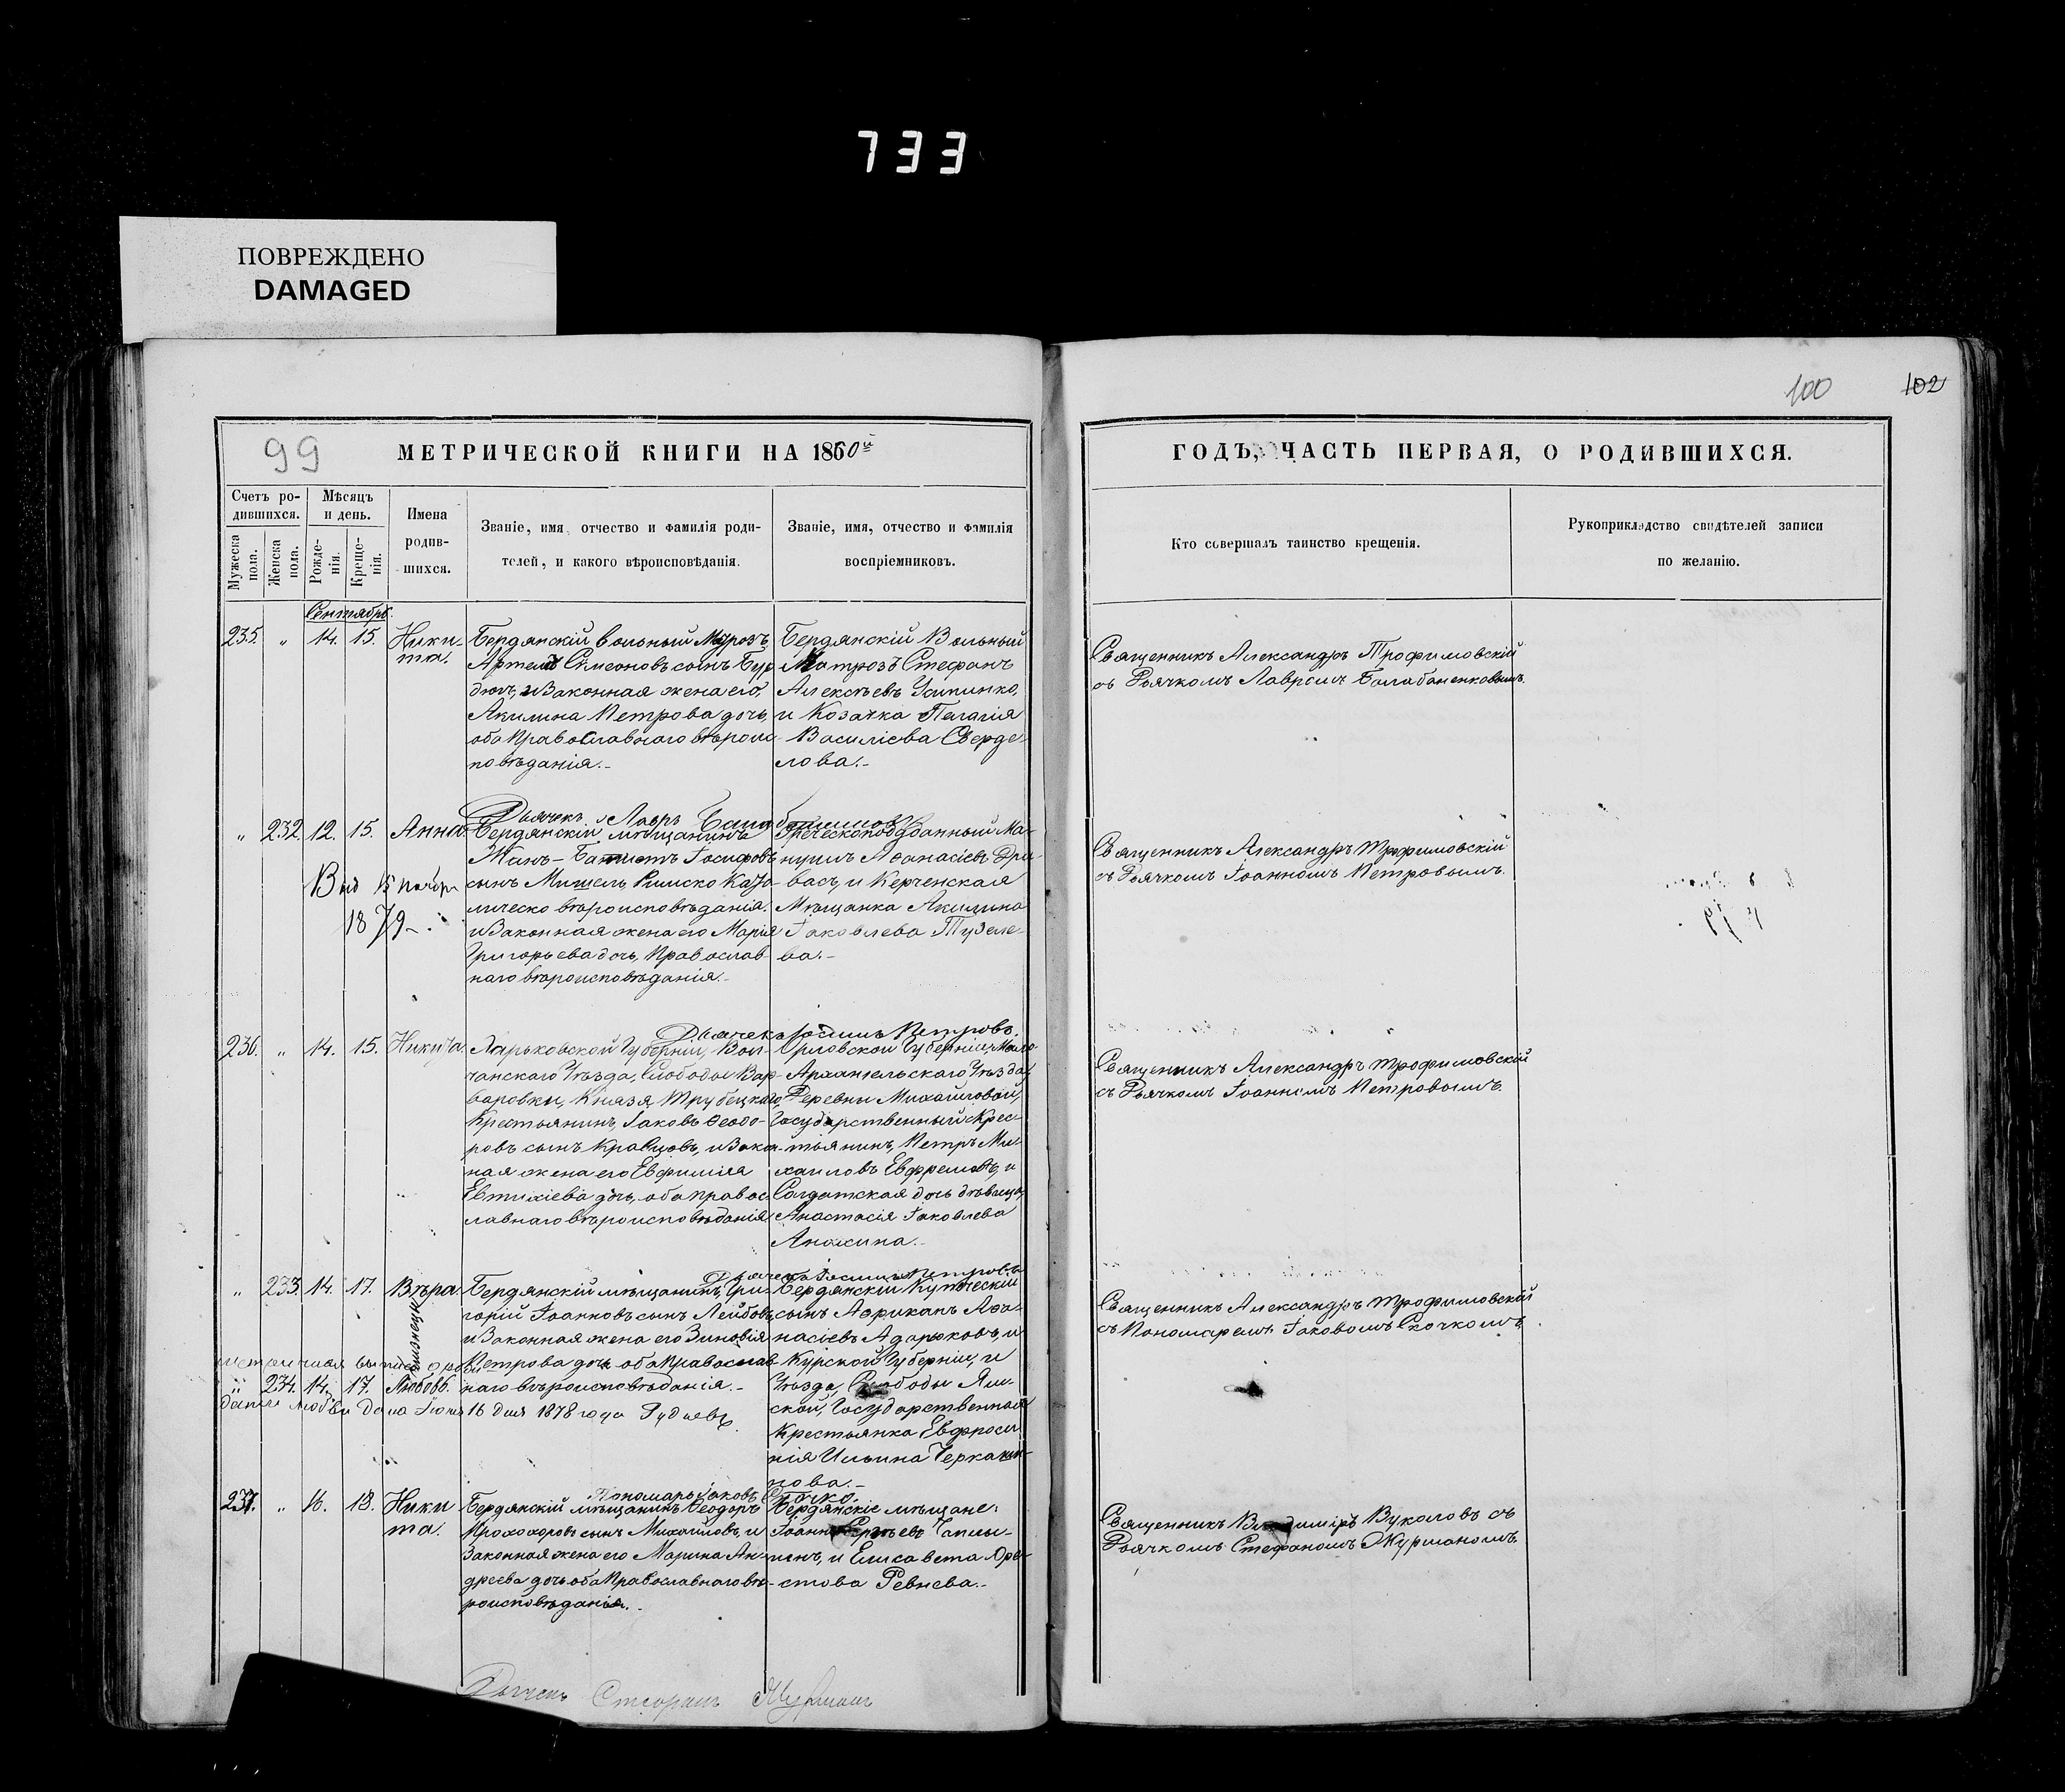 733
ПОВРЕЖДЕНО
DAMAGED
100
102
99
МЕТРИЧЕСКОЙ КНИГИ НА 1860й
Счетъ родившихся.
Мужеска пола.
Женска пола.
Мѣсяцъ и день.
Рожденія.
Крещенія.
Имена родившихся.
Званіе, имя, отчество и фамилія роди-
телей, и какого вѣроисповѣданія.
Званіе, имя, отчество и фамилія
воспріемниковъ.
ГОДЪ, ЧАСТЬ ПЕРВАЯ, О РОДИВШИХСЯ.
Кто совершалъ таинство крещенія.
Рукоприкладство свидѣтелей записи
по желанію.
Сентябрь.
235. " 14. 15. Ники-
та.
Бердянскій вольный Матрозъ,
Артемій Симеоновъ сынъ Бур-
и Законная жена его,
Акилина Петрова дочь,
оба Православнаго вѣроис
повѣданія.-
Бердянскій Вольный
Матрозъ Стефанъ
Алексѣевъ Усипинко,
и Козачка Пелагія
Василіева Сверде-
лова.-
Священникъ Александръ Трофимовскій
съ Дьячкомъ Лавромъ Балабаненковымъ.
Дьячекъ Лавръ
" 232. 12. 15. Анна
Бердянскій мѣщанинъ
Жанъ-Батистъ Іосифовъ
сынъ Мишель, Римско Като-
лическо вѣроисповѣданія.
и Законная жена его Марія
Григорьева дочь, Православ-
наго вѣроисповѣданія.-
Греческоподданный Ма-
нуилъ Аѳанасіевъ Дри-
васъ, и Керченская
Мѣщанка Акилина
Іаковлева Тузле-
ва.-
15 ноября
1879
Священникъ Александръ Трофимовскій
съ Дьячкомъ Іоанномъ Петровымъ.
Дьячекъ Іоаннъ Петровъ.
236. " 14. 15. Никита
Харьковской Губерніи, Вол-
чанскаго Уѣзда, Слободы Вар-
варовки, Князя Трубецкаго,
Крестьянинъ, Іаковъ Ѳеодо-
ровъ сынъ Кравцовъ, и Закон-
ная жена его Евфимія
Евтихіева дочь, оба правос
лавнаго вѣроисповѣданія
Орловской Губерніи, Мало
Архангельскаго Уѣзда,
Деревни Михайловой,
Государственный Крес-
тьянинъ, Петръ Ми-
хаиловъ Евфремовъ, и
Солдатская дочь дѣвица,
Анастасія Іаковлева
Анохина.-
Священникъ Александръ Трофимовскій
съ Дьячкомъ Іоанномъ Петровымъ.
Дьячекъ Іоаннъ Петровъ
" 233. 14. 17. Вѣра.
близнецы
" 234. 14. 17. Любовь.
Бердянскій мѣщанинъ, Гри-
горій Іоанновъ сынъ Лейбовъ,
и Законная жена его Зиновія
Петрова дочь оба Православ-
наго вѣроисповѣданія.-
Бердянскій Купеческій
сынъ Африканъ Аѳа-
насіевъ Адарюковъ, и
Курской Губерніи, и
Уѣзда, Слободы Ям-
ской, Государственная
Крестьянка Евфроси
нія Ильина Черкаши-
нова.-
дана Іюня 16 дня 1878 года
Священникъ Александръ Трофимовскій
съ Пономаремъ Іаковомъ Скочкомъ.
Пономарь Іаковъ Скочко.
237. " 16. 18. Ники
та.
Бердянскій мѣщанинъ Ѳеодоръ
Прохоровъ сынъ Михайловъ, и
Законная жена его Марина Ан-
дреева дочь оба Православнаго вѣ-
роисповѣданія.-
Бердянскіе мѣщане:
Іоаннъ Сергѣевъ
и Елисавета Оре-
стова Ревнева.-
Священникъ Владиміръ Вуколовъ съ
Дьячкомъ Стефаномъ Журманомъ.
Дьячекъ Стефанъ Журманъ